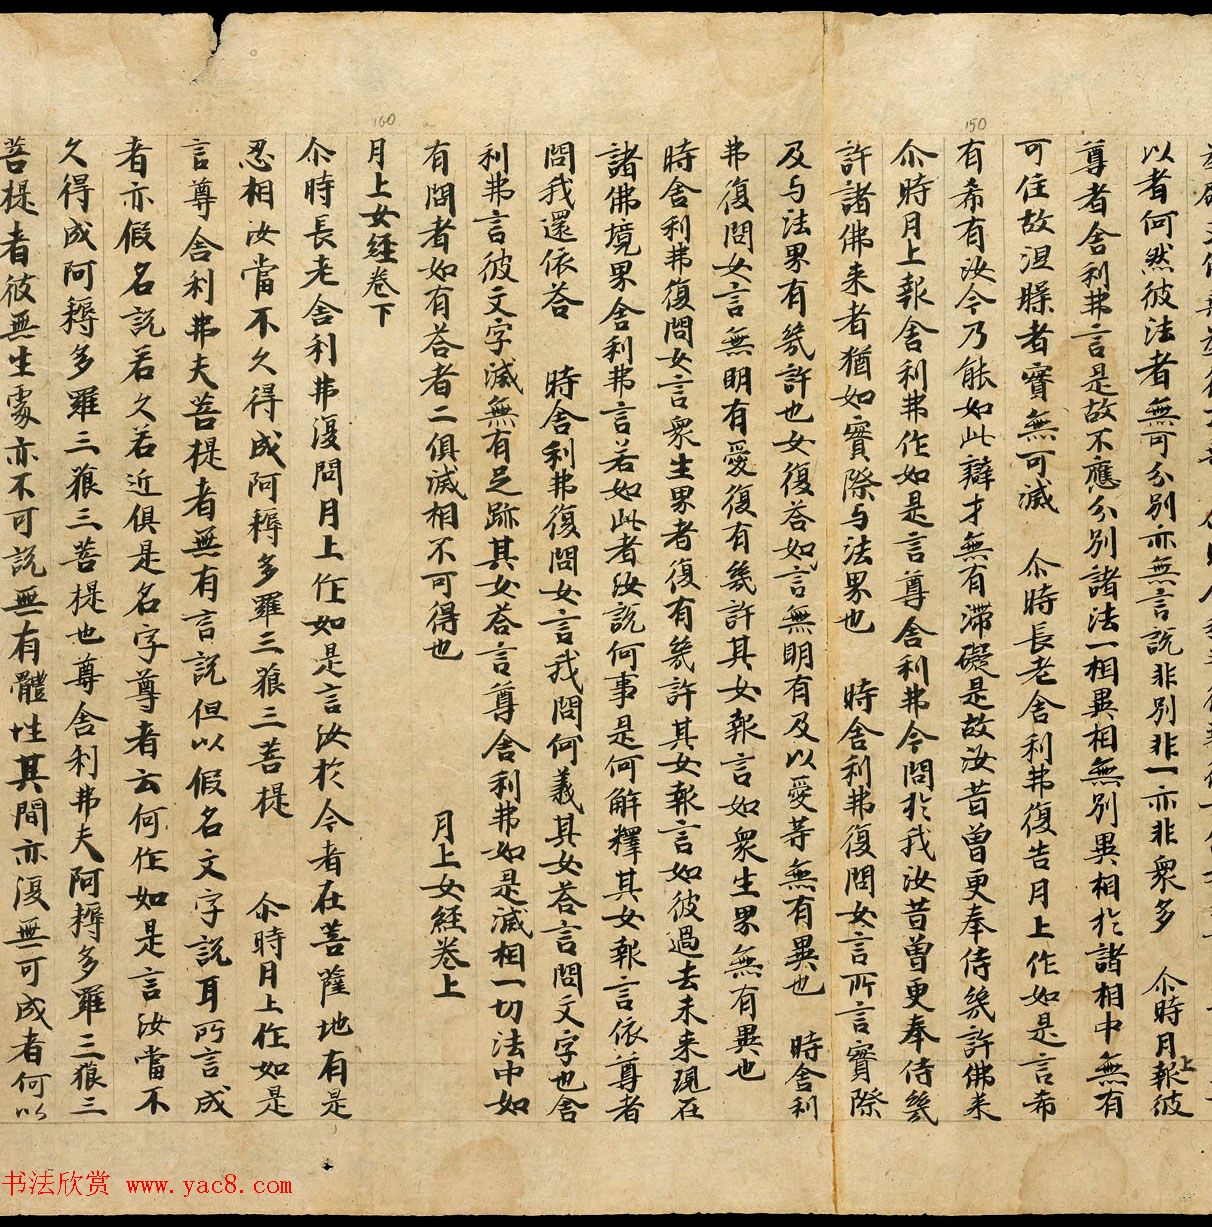 以者何然彼法者無可分別亦無言說非別非一亦非衆多 尒時月上報彼
尊者舍利弗言是故不應分別諸法一相異相無別異相於諸相中無有
可住故涅槃者實無可滅 尒時長老舍利弗復告月上作如是言希
有希有汝今乃能如此辯才無有滯礙是故汝昔曾更奉侍幾許佛来
尒時月上報舍利弗作如是言尊舍利弗今問於我汝昔曾更奉侍幾
許諸佛来者猶如實際与法界也 時舍利弗復問女言所言實際
及与法界有幾許也女復答如言無明有及以愛等無有異也 時舍利
弗復問女言無明有愛復有幾許其女報言如衆生界無有異也
時舍利弗復問女言衆生界者復有幾許其女報言如彼過去未来現在
諸佛境界舍利弗言若如此者汝說何事是何解釋其女報言依尊者
問我還依答 時舍利弗復問女言我問何義其女答言問文字也舍
利弗言彼文字滅無有足跡其女答言尊舍利弗如是滅相一切法中如
有問者如有答者二俱滅相不可得也 月上女経卷上
月上女経卷下
尒時長老舍利弗復問月上作如是言汝於今者在菩薩地有是
忍相汝當不久得成阿耨多羅三狼三菩提 尒時月上作如是
言尊舍利弗夫菩提者無有言說但以假名文字說耳所言成
者亦假名說若久若近俱是名字尊者云何作如是言汝當不
久得成阿耨多羅三狼三菩提也尊舍利弗夫阿耨多羅三狼三
菩提者彼無生處亦不可說無有體性其間亦復無可成者何以
150
160
书法欣赏 www.yac8.com